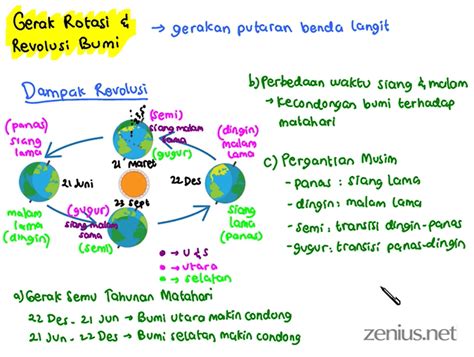 Gerak Rotasi &
Revolusi Bumi
→ gerakan putaran benda langit
Dampak Revolusi
(panas)
siang
lama
21 Juni
malam
lama
(dingin)
(semi)
siang malam
sama
(gugur)
21
maret
23 sept
(gugur)
siang malam
sama
(semi)
22 Des
(dingin)
malam
lama
siang
lama
(panas)
• → U & S
• → utara
• → selatan
a) Gerak Semu Tahunan Matahari
22 Des - 21 Jun → Bumi utara makin condong
21 Jun - 22 Des → Bumi selatan makin condong
b) Perbedaan waktu siang & malam
→ Kecondongan bumi terhadap
matahari
c) Pergantian Musim
- panas : siang lama
- dingin : malam lama
- semi : transisi dingin-panas
- gugur : transisi panas-dingin
zenius.net